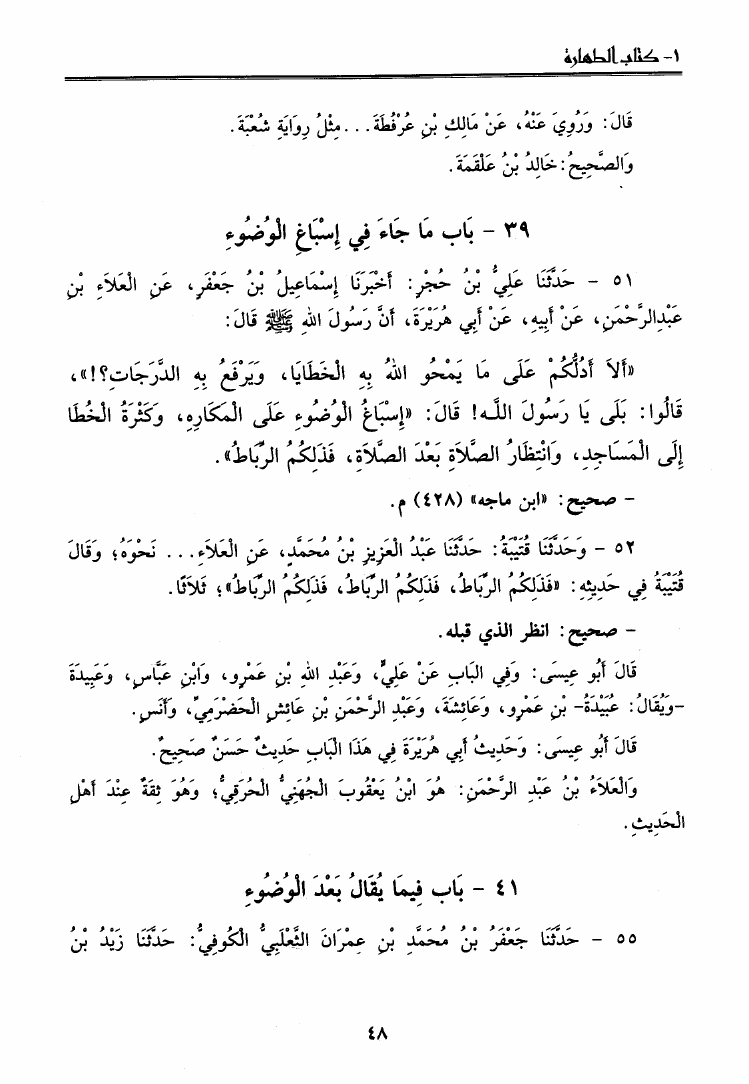 ١- كتاب الطهارة
قَالَ: وَرُوِيَ عَنْهُ، عَنْ مَالِكِ بْنِ عُرْفُطَةَ... مِثْلُ رِوَايَةِ شُعْبَةَ.
وَالصَّحِيحُ: خَالِدُ بْنُ عَلْقَمَةَ.
٣٩ - بَاب مَا جَاءَ فِي إِسْبَاغِ الْوُضُوءِ
٥١ - حَدَّثَنَا عَلِيُّ بْنُ حُجْرٍ: أَخْبَرَنَا إِسْمَاعِيلُ بْنُ جَعْفَرٍ، عَنِ الْعَلَاءِ بْنِ
عَبْدِالرَّحْمَنِ، عَنْ أَبِيهِ، عَنْ أَبِي هُرَيْرَةَ، أَنَّ رَسُولَ اللهِ ﷺ قَالَ:
«أَلاَ أَدُلُّكُمْ عَلَى مَا يَمْحُو اللهُ بِهِ الْخَطَايَا، وَيَرْفَعُ بِهِ الدَّرَجَاتِ؟!»،
قَالُوا: بَلَى يَا رَسُولَ اللَّهِ! قَالَ: «إِسْبَاغُ الْوُضُوءِ عَلَى الْمَكَارِهِ، وَكَثْرَةُ الْخُطَا
إِلَى الْمَسَاجِدِ، وَانْتِظَارُ الصَّلاَةِ بَعْدَ الصَّلاَةِ، فَذَلِكُمُ الرِّبَاطُ».
- صحيح: «ابن ماجه» (٤٢٨) م.
٥٢ - وَحَدَّثَنَا قُتَيْبَةُ: حَدَّثَنَا عَبْدُ الْعَزِيزِ بْنُ مُحَمَّدٍ، عَنِ الْعَلَاءِ... نَحْوَهُ؛ وَقَالَ
قُتَيْبَةُ فِي حَدِيثِهِ: «فَذَلِكُمُ الرِّبَاطُ، فَذَلِكُمُ الرِّبَاطُ، فَذَلِكُمُ الرِّبَاطُ»؛ ثَلاَثًا.
- صحيح: انظر الذي قبله.
قَالَ أَبُو عِيسَى: وَفِي الْبَابِ عَنْ عَلِيٍّ، وَعَبْدِ اللهِ بْنِ عَمْرٍو، وَابْنِ عَبَّاسٍ، وَعَبِيدَةَ
-وَيُقَالُ: عُبَيْدَةُ- بْنِ عَمْرٍو، وَعَائِشَةَ، وَعَبْدِ الرَّحْمَنِ بْنِ عَائِشٍ الْحَضْرَمِيِّ، وَأَنَسٍ.
قَالَ أَبُو عِيسَى: وَحَدِيثُ أَبِي هُرَيْرَةَ فِي هَذَا الْبَابِ حَدِيثٌ حَسَنٌ صَحِيحٌ.
وَالْعَلَاءُ بْنُ عَبْدِ الرَّحْمَنِ: هُوَ ابْنُ يَعْقُوبَ الْجُهَنِيُّ الْحُرَقِيُّ؛ وَهُوَ ثِقَةٌ عِنْدَ أَهْلِ
الْحَدِيثِ.
٤١ - بَاب فِيمَا يُقَالُ بَعْدَ الْوُضُوءِ
٥٥ - حَدَّثَنَا جَعْفَرُ بْنُ مُحَمَّدِ بْنِ عِمْرَانَ الثَّعْلَبِيُّ الْكُوفِيُّ: حَدَّثَنَا زَيْدُ بْنُ
٤٨